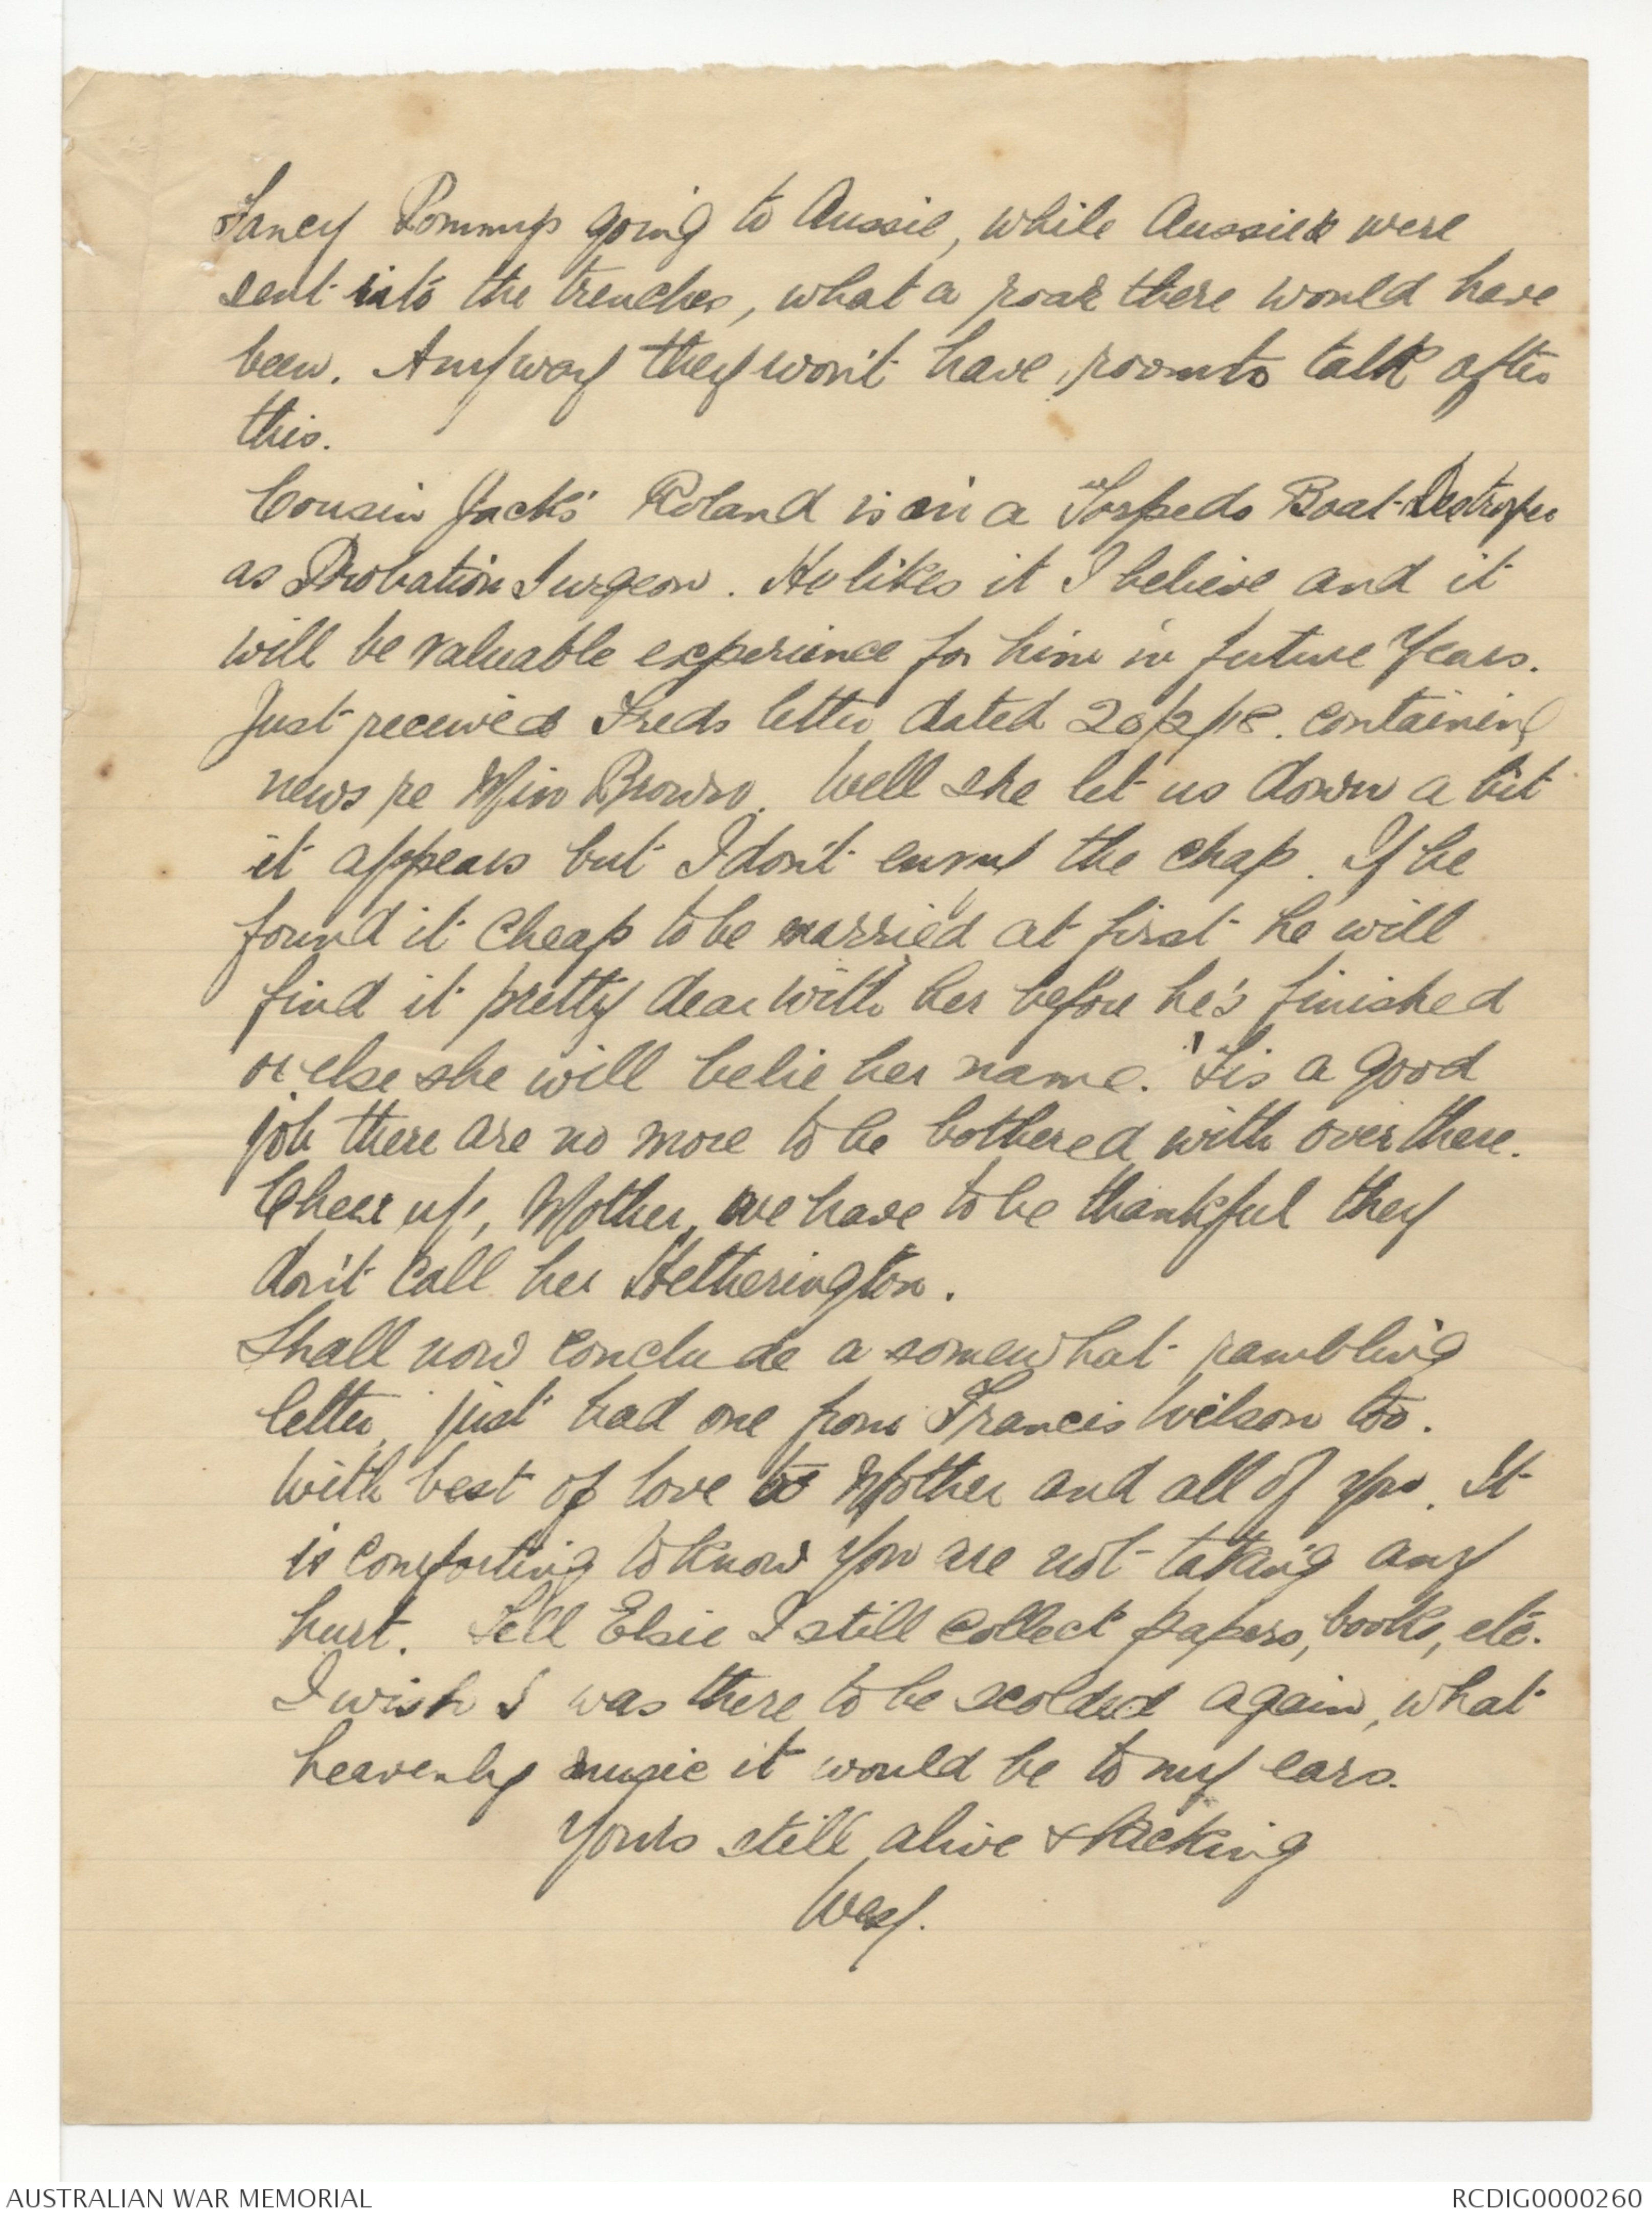 Fancy Pommys going to Aussie, while Aussies were
sent into the trenches, what a roar there would have
been. Anyway they won't have room to talk after
this.
Cousin Jack's Roland is in a Torpedo Boat-Destroyer
as Probation Surgeon. He likes it I believe and it
will be valuable experience for him in future years.
Just received Freds letter dated 20/2/18. containing
news re Min Brown. Well she let us down a bit
it appears but I don't envy the chap. If he
found it cheap to be married at first he will
find it pretty dear with her before he's finished
or else she will belie her name. 'Tis a good
job there are no more to be bothered with over there.
Cheer up, Mother, we have to be thankful they
don't call her Hetherington.
Shall now conclude a somewhat rambling
letter, just had one from Francis Wilson too.
With best of love to Mother and all of you. It
is comforting to know you are not taking any
hurt. Tell Elsie I still collect papers, books, etc.
I wish I was there to be scolded again, what
heavenly music it would be to my ears.
Yours still alive & kicking
Wesy.
AUSTRALIAN WAR MEMORIAL
RCDIG0000260